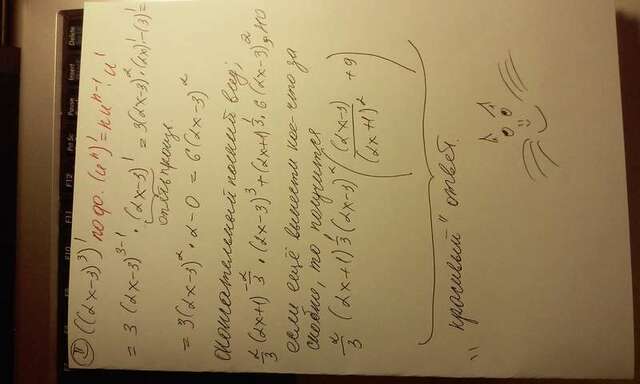 II ((2x-3)³)' по ф. (uⁿ)' = n uⁿ⁻¹ · u'
= 3 (2x-3)³⁻¹ · (2x-3)' = 3(2x-3)² · (2x)' - (3)' =
опять проще
= 3(2x-3)² · 2 - 0 = 6(2x-3)²
окончательный полный вид;
2/3 (2x+1)^(-2/3) · (2x-3)³ + (2x+1)^(1/3) · 6(2x-3)², но
если ещё вынести кое-что за
скобки, то получится
2/3 (2x+1)^(1/3) (2x-3)² ((2x-3)/(2x+1)² + 9)
"красивый" ответ.